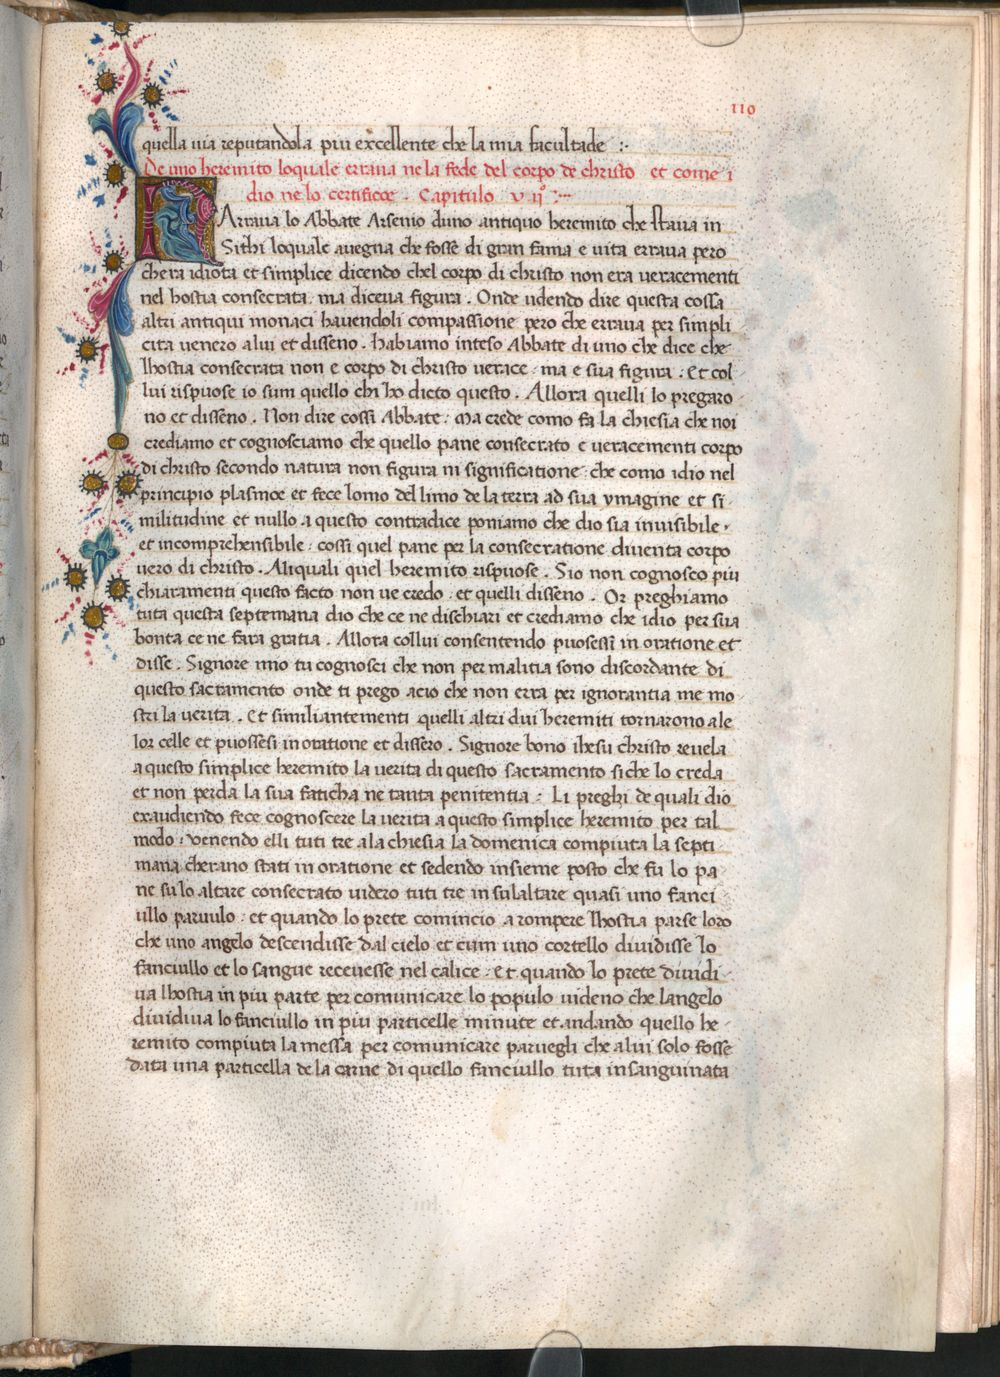 110
quella uia reputandola piu excellente che la mia facultade :·
De uno heremito loquale erraua ne la fede del corpo de christo et come i
dio ne lo certificoe . Capitulo vijº :··
NArraua lo Abbate Arsenio duno antiquo heremito che staua in
Sithi loquale auegna che fosse di gran fama e uita erraua pero
chera idiota et simplice dicendo chel corpo di christo non era ueracementi
nel hostia consecrata, ma diceua figura . Onde udendo dire questa cossa
altri antiqui monaci hauendoli compassione pero che erraua per simpli
cita uenero alui et disseno . habiamo inteso Abbate di uno che dice che
lhostia consecrata non e corpo di christo uerace · ma e sua figura . Et col
lui rispuose io sum quello chi ho dicto questo . Allora quelli lo pregaro
no et disseno . Non dire cossi Abbate : Ma crede como fa la chiesia che noi
crediamo et cognosciamo che quello pane consecrato e ueracementi corpo
di christo secondo natura non figura ni significatione : che como idio nel
principio plasmoe et fece lomo del limo de la terra ad sua ymagine et si
militudine et nullo a questo contradice poniamo che dio sia inuisibile ·
et incomprehensibile : cossi quel pane per la consecratione diuenta corpo
uero di christo . Aliquali quel heremito rispuose . Sio non cognosco piu
chiaramenti questo facto non ue credo · et quelli disseno . Or preghiamo
tuta questa septemana dio che ce ne dischiari et crediamo che idio per sua
bonta ce ne fara gratia . Allora collui consentendo puosessi in oratione et
disse . Signore mio tu cognosci che non per malitia sono discordante di
questo sacramento onde ti prego acio che non erra per ignorantia me mo
stri la uerita . Et similiantementi quelli altri dui heremiti tornarono ale
lor celle et puossesi in oratione et dissero . Signore bono ihesu christo reuela
a questo simplice heremito la uerita di questo sacramento siche lo creda
et non perda la sua faticha ne tanta penitentia : Li preghi de quali dio
exaudiendo fece cognoscere la uerita a questo simplice heremito per tal
modo : venendo elli tuti tre ala chiesia la domenica compiuta la septi
mana cherano stati in oratione et sedendo insieme posto che fu lo pa
ne su lo altare consecrato uidero tuti tre in sulaltare quasi uno fanci
ullo paruulo : et quando lo prete comincio a rompere lhostia parse loro
che uno angelo descendisse dal cielo et cum uno cortello diuidisse lo
fanciullo et lo sangue receuesse nel calice : et quando lo prete diuidi
ua lhostia in piu parte per comunicare lo populo uideno che langelo
diuidiua lo fanciullo in piu particelle minute et andando quello he
remito compiuta la messa per comunicare paruegli che alui solo fosse
data una particella de la carne di quello fanciullo tuta insanguinata